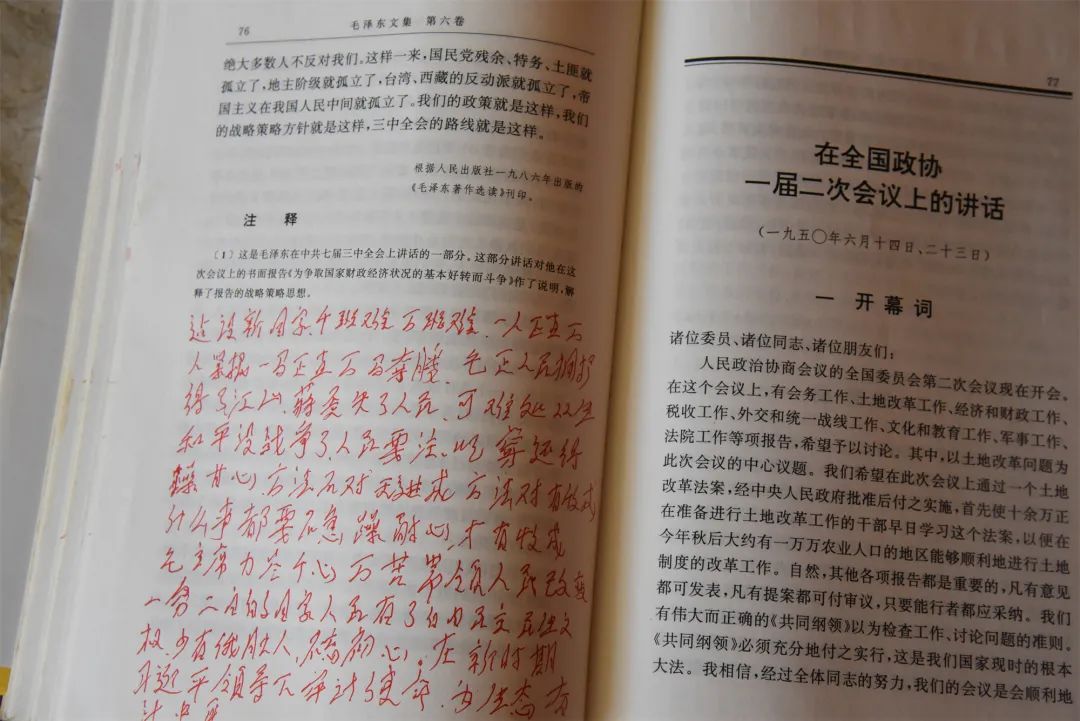 76
毛泽东文集 第六卷
绝大多数人不反对我们。这样一来，国民党残余、特务、土匪就
孤立了，地主阶级就孤立了，台湾、西藏的反动派就孤立了，帝
国主义在我国人民中间就孤立了。我们的政策就是这样，我们
的战略策略方针就是这样，三中全会的路线就是这样。
根据人民出版社一九八六年出版的
《毛泽东著作选读》刊印。
注 释
〔1〕这是毛泽东在中共七届三中全会上讲话的一部分。这部分讲话对他在这
次会议上的书面报告《为争取国家财政经济状况的基本好转而斗争》作了说明，解
释了报告的战略策略思想。
新国家千班难万班难，一人正直万
人 一马正直万马奔腾，毛正人民拥护
得了江山，蒋 失了人民，可难处
和平没战争了，人民要法
心，方法不对 方法对有收成
什么事都要不急躁耐心，才有收成
毛主席力 千心万苦带领人民改变
一穷二白的国家人民有了自由民主
权少有饿肚人， 初心。在新时期
习近平领导下 使命，为生态
77
在全国政协
一届二次会议上的讲话
（一九五〇年六月十四日、二十三日）
一 开幕词
诸位委员、诸位同志、诸位朋友们：
人民政治协商会议的全国委员会第二次会议现在开会。
在这个会议上，有会务工作、土地改革工作、经济和财政工作、
税收工作、外交和统一战线工作、文化和教育工作、军事工作、
法院工作等项报告，希望予以讨论。其中，以土地改革问题为
此次会议的中心议题。我们希望在此次会议上通过一个土地
改革法案，经中央人民政府批准后付之实施，首先使十余万正
在准备进行土地改革工作的干部早日学习这个法案，以便在
今年秋后大约有一万万农业人口的地区能够顺利地进行土地
制度的改革工作。自然，其他各项报告都是重要的，凡有意见
都可发表，凡有提案都可付审议，只要能行者都应采纳。我们
有伟大而正确的《共同纲领》以为检查工作、讨论问题的准则。
《共同纲领》必须充分地付之实行，这是我们国家现时的根本
大法。我相信，经过全体同志的努力，我们的会议是会顺利地